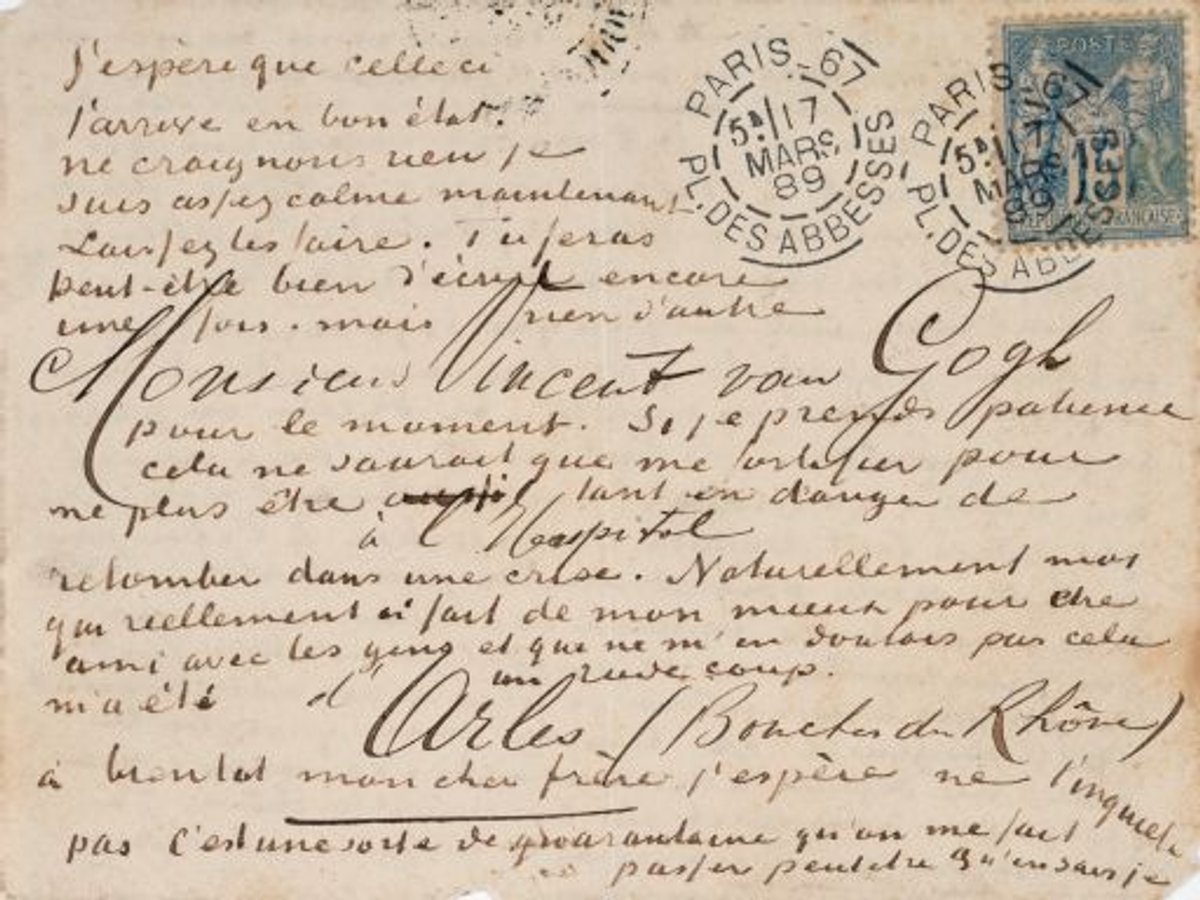 PARIS_67
5ᴱ/17
MARS
89
PL. DES ABBESSES
PARIS_67
5ᴱ/17
MARS
89
PL. DES ABBESSES
POSTES
15
REPUBLIQUE FRANÇAISE
J'espère que celle ci
t'arrive en bon état.
ne craignons rien je
suis assez calme maintenant
Laissez les faire. Tu feras
peut-être bien d'écrire encore
une fois. mais rien d'autre
Monsieur Vincent van Gogh
pour le moment. Si je prends patience
cela ne saurait que me fortifier pour
ne plus être tant en danger de
à l'Hospital
retomber dans une crise. Naturellement moi
qui reellement ai fait de mon mieux pour être
ami avec les gens et que ne m'en doutais pas cela
m'a été un rude coup.
d'Arles (Bouches du Rhône)
à bientot mon cher frère j'espère ne t'inquiete
pas C'est une sorte de quarantaine qu'on me fait
passer peutetre qu'en sais je